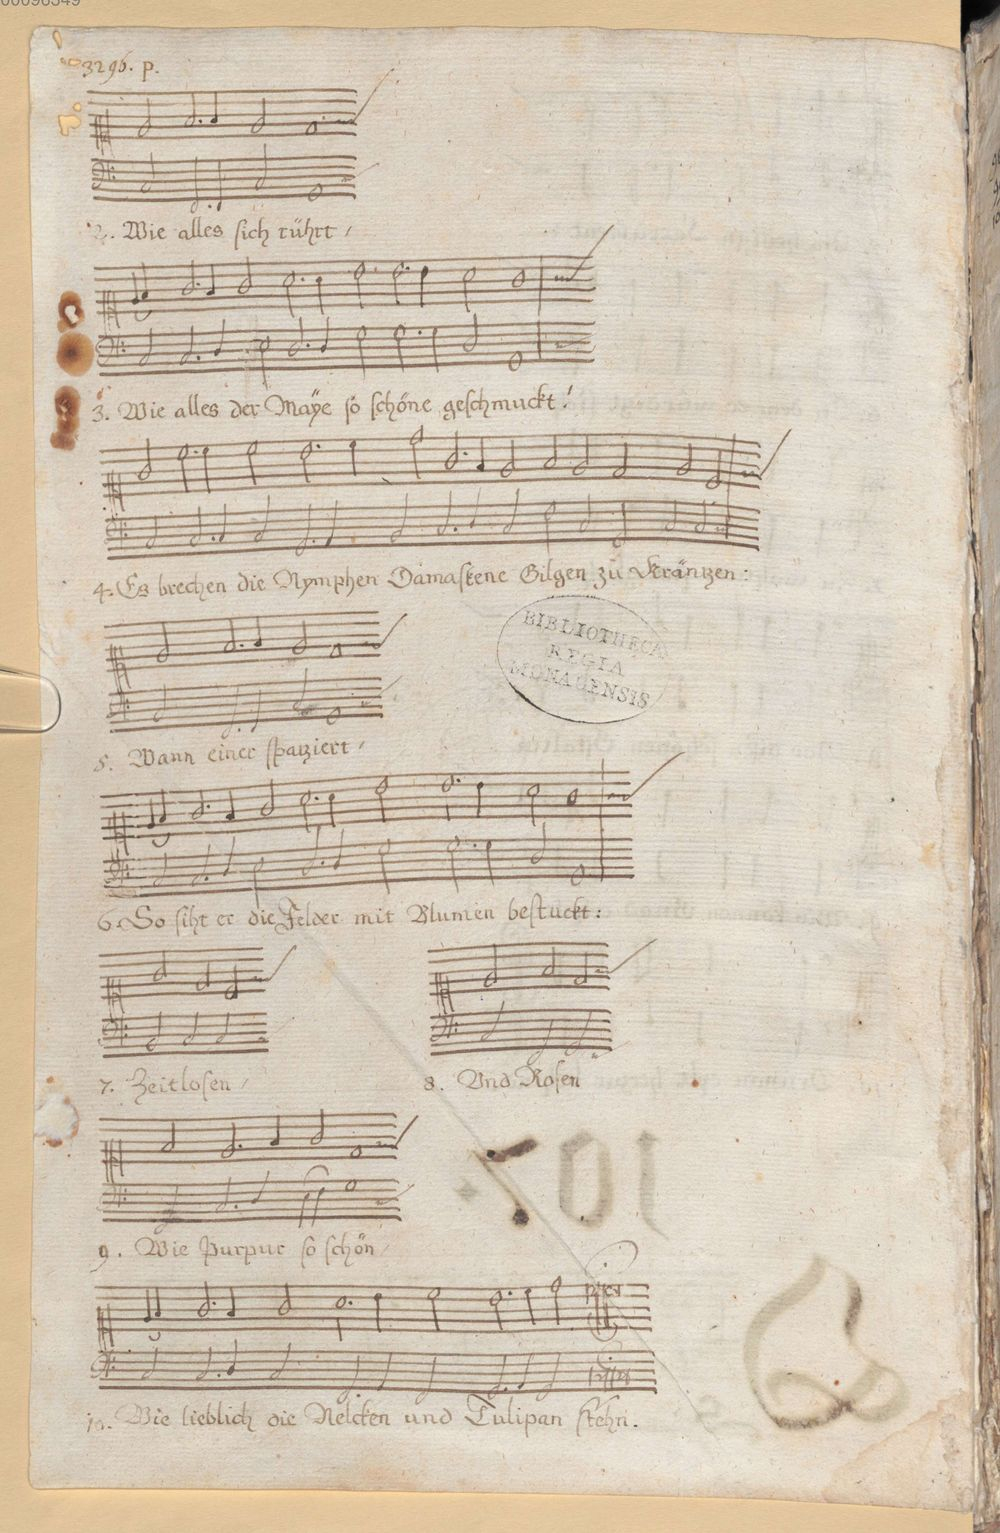 00096349
3296. p.
2. Wie alles sich rührt /
3. Wie alles der Maÿe so schöne geschmuckt /
4. Es brechen die Nymphen Damaskene Gilgen zu Kräntzen:
BIBLIOTHECA
REGIA
MONACENSIS
5. Wann einer spatziert /
6. So siht er die Felder mit Blumen bestuckt:
7. Zeitlosen /
8. Vnd Rosen
9. Wie Purpur so schön /
10. Wie lieblich die Nelcken und Tulipan stehn.